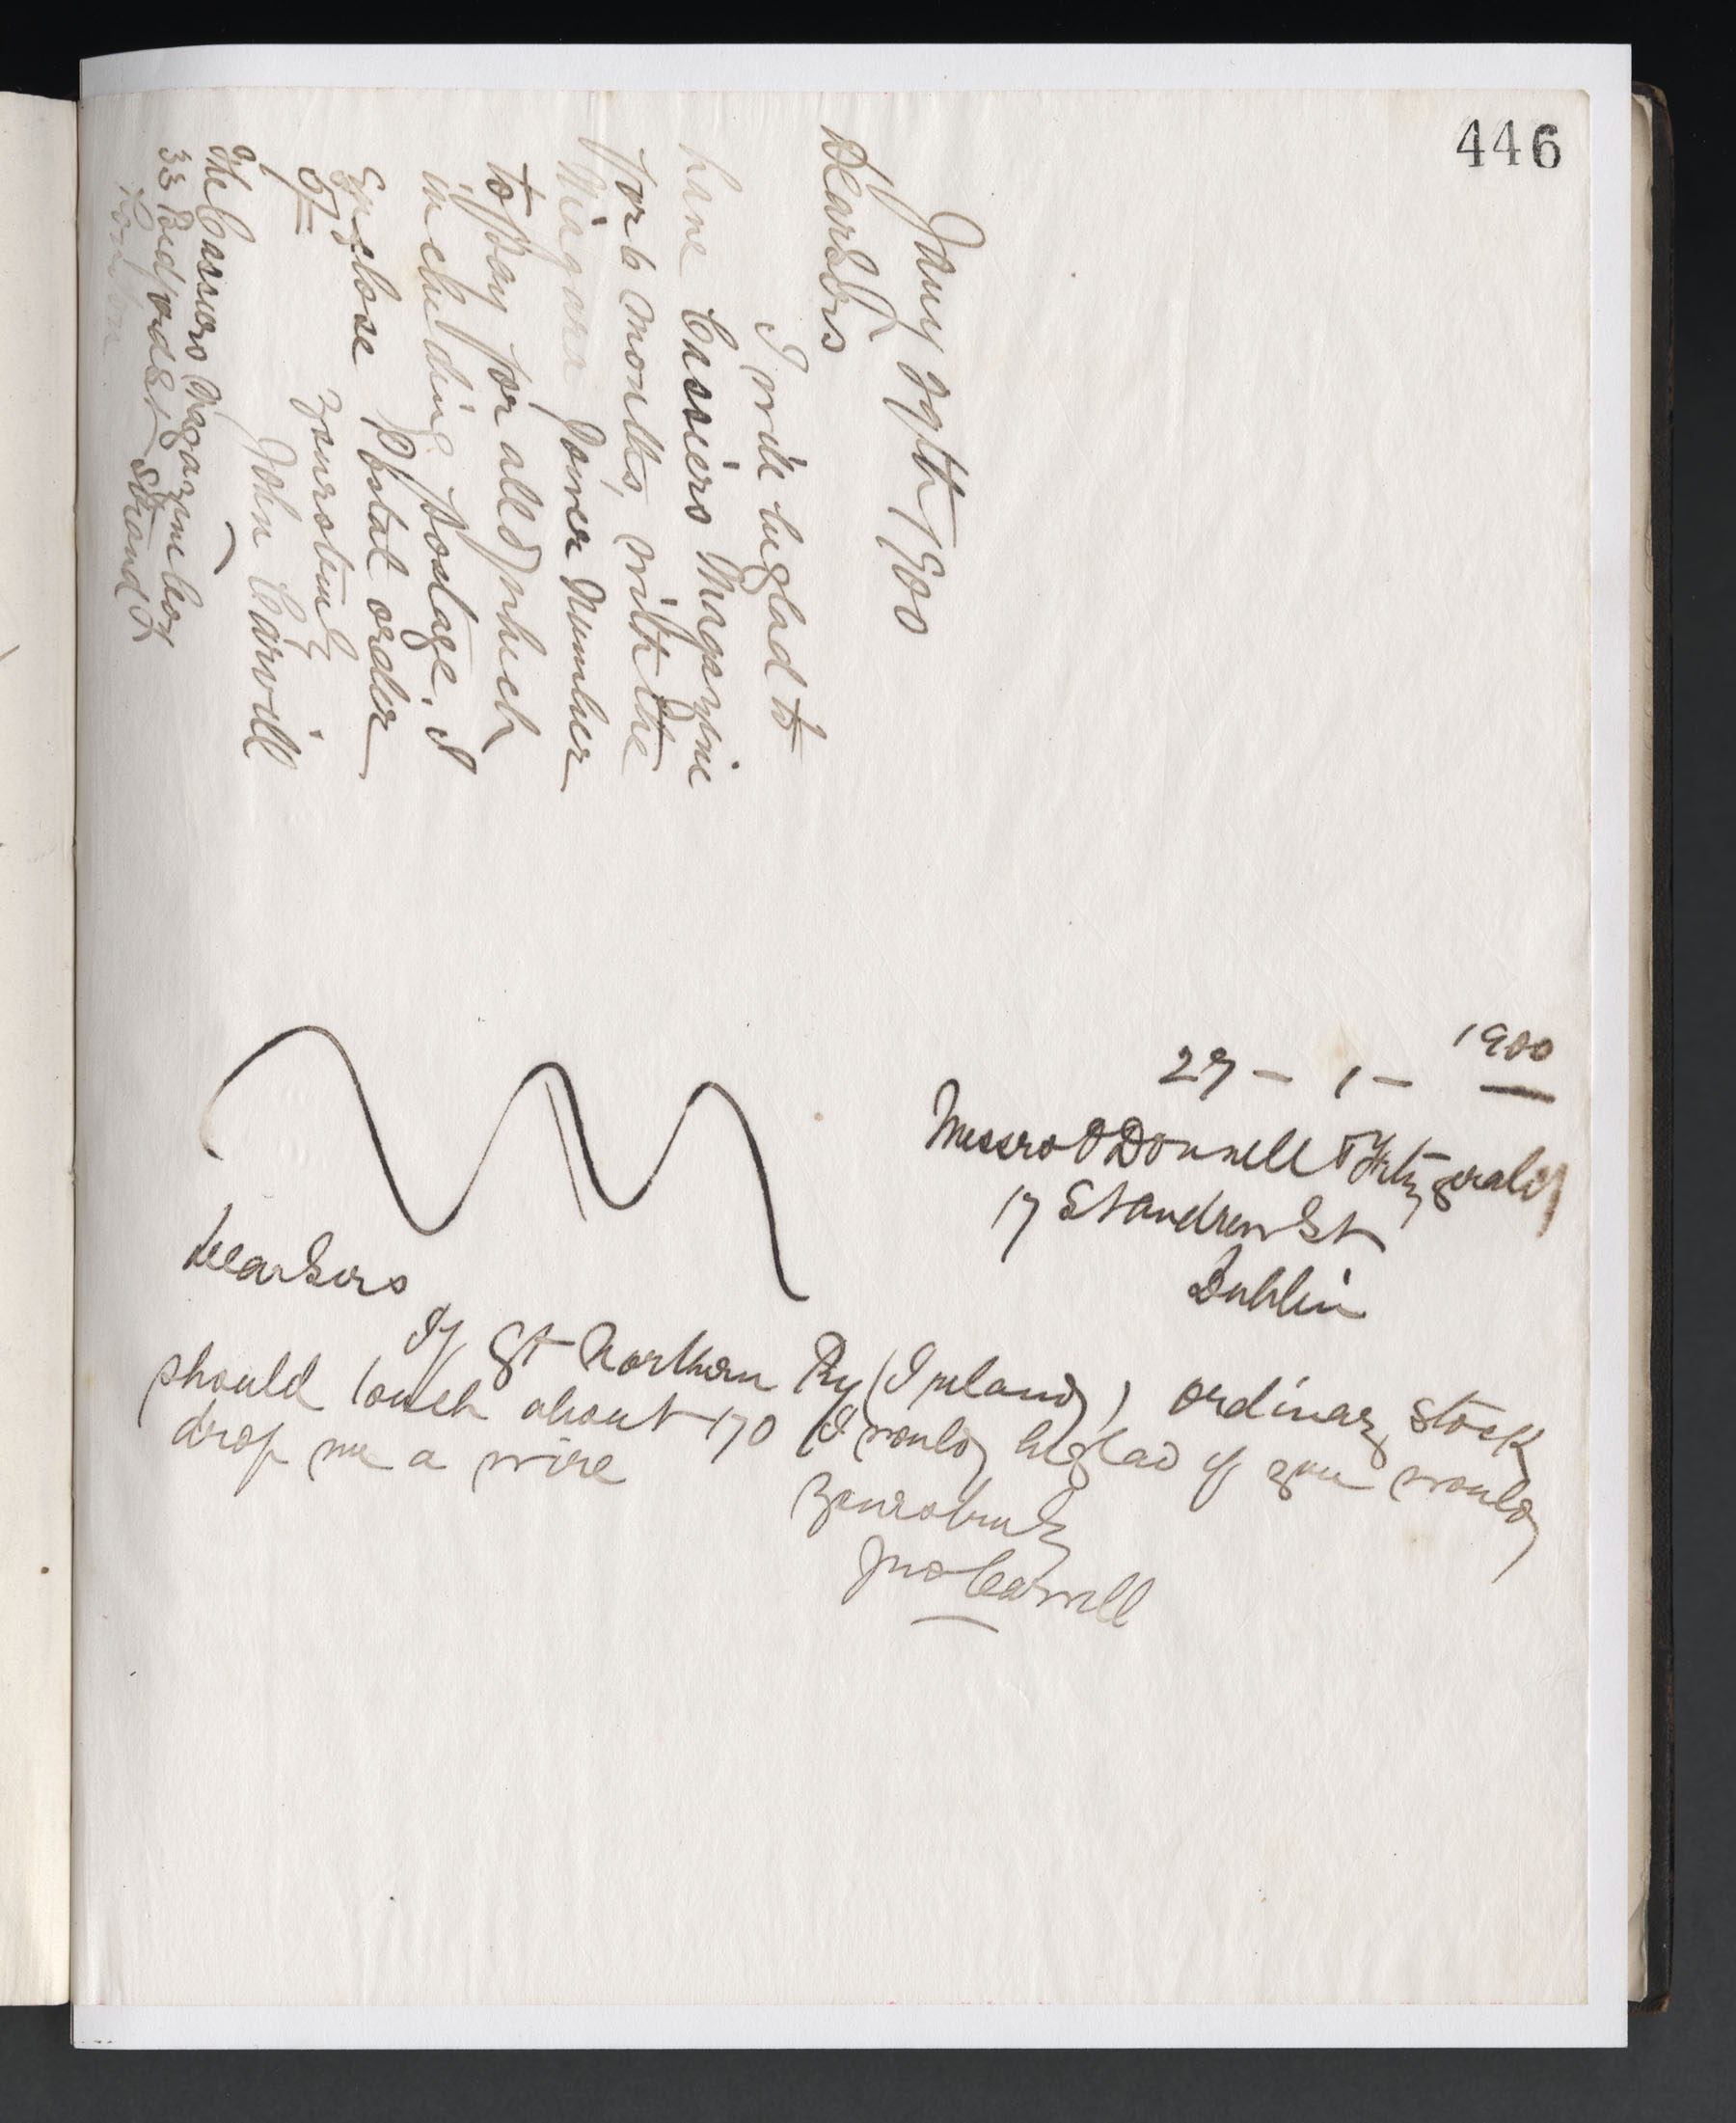 446
Jany 27th 1900
Dear Sirs
I will be glad to
have Cassiers Magazine
for 6 months, with the
Niagara Power Number
to pay for all of which
including postage. I
Enclose Postal order
9/=
Yours truly
John Carvill
The Cassiers Magazine Coy
33 Bedford St Strand
London
27 - 1 - 1900
Messrs O Donnell & Fitzgerald
17 St Andrew St
Dublin
Dear Sirs
If Gt Northern Ry (Ireland) ordinary stock
should touch about 170 I would be glad if you would
drop me a wire
Yours truly
Jno Carvill